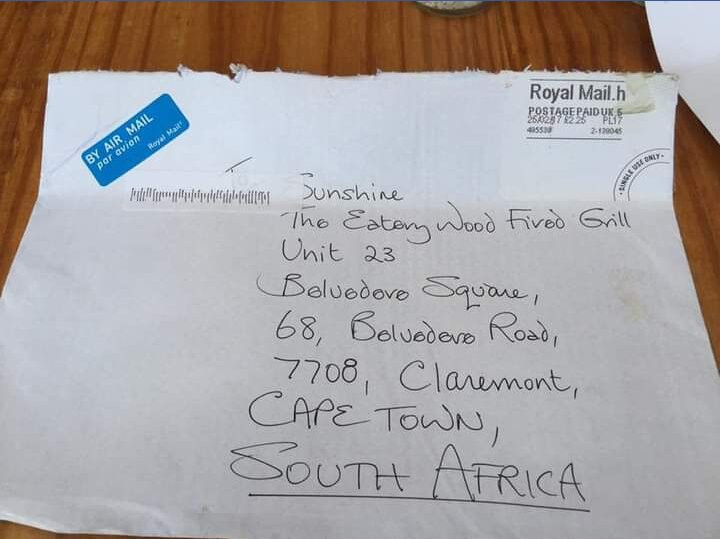 Royal Mail.h
POSTAGE PAID UK
25/02/17 £2.25 PL17
2-139045
BY AIR MAIL
par avion
Royal Mail
SINGLE USE ONLY
To
Sunshine
The Eatery Wood Fired Grill
Unit 23
Belvedere Square,
68, Belvedere Road,
7708, Claremont,
CAPE TOWN,
SOUTH AFRICA